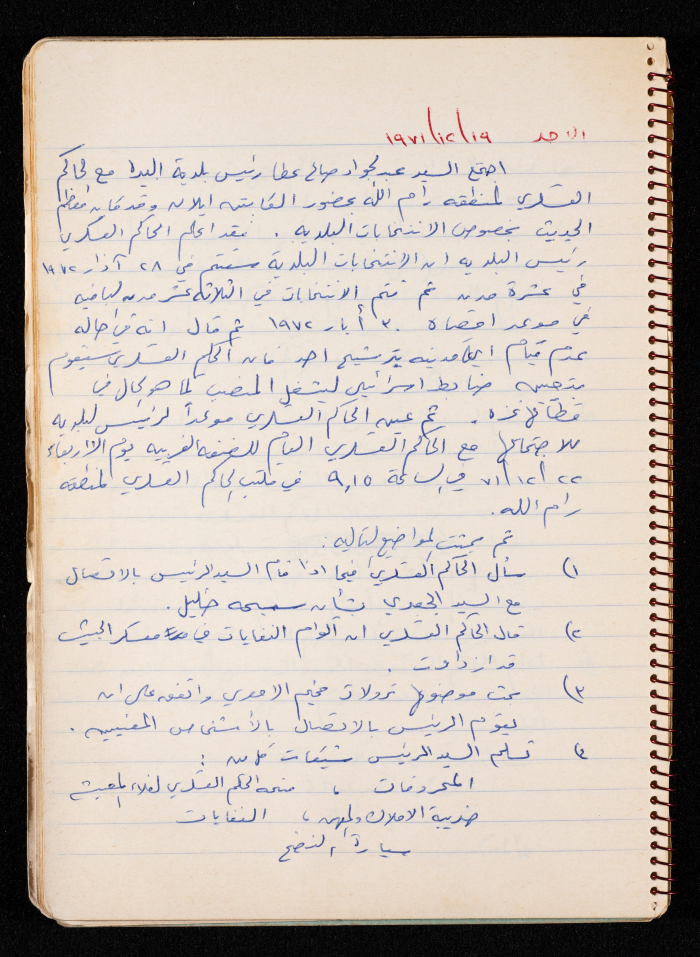 الاحد ١٩٧١/١٢/١٩
اجتمع السيد عبدالجواد صالح عطا رئيس بلدية البيرة مع الحاكم
العسكري لمنطقة رام الله بحضور الكابتن ايلان وقد كان معظم
الحديث بخصوص الانتخابات البلدية . فقد اعلم الحاكم العسكري
رئيس البلدية ان الانتخابات البلدية ستتم في ٢٨ آذار ١٩٧٢
في عشرة مدن ثم تتم الانتخابات في الثلاثة عشر مدن الباقية
في موعد اقصاه ٣٠ أيار ١٩٧٢ ثم قال انه في حالة
عدم قيام اي مدينة بترشيح احد فان الحاكم العسكري سيقوم
بتعيين ضابط اسرائيلي ليشغل المنصب كما هو الحال في
قطاع غزة . ثم عين الحاكم العسكري موعداً لرئيس البلدية
للاجتماع مع الحاكم العسكري العام للضفة الغربية يوم الاربعاء
٧١/١٢/٢٢ في الساعة ٩,١٥ في مكتب الحاكم العسكري لمنطقة
رام الله .
ثم بحثت المواضيع التالية :
١) سأل الحاكم العسكري فيما اذا قام السيد الرئيس بالاتصال
مع السيد الجعبري بشأن خليل .
٢) قال الحاكم العسكري ان اكوام النفايات في معسكر الجيش
قد ازدادت .
٣) بحث موضوع مخيم الامعري واتفق على ان
يقوم الرئيس بالاتصال بالأشخاص المعنيين .
٤) تسلم السيد الرئيس شيكات كل من :
المحروقات ، منحة الحكم العسكري لغلاء المعيشة
ضريبة الاملاك والمهن ، النفايات
سيارة النضح